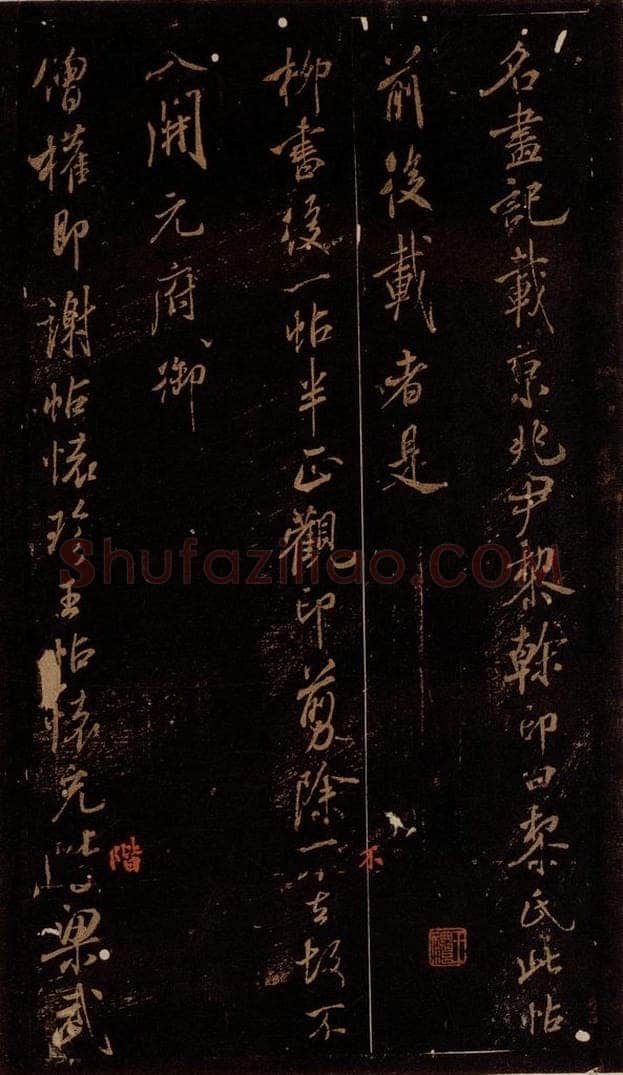 名畫記載京兆尹黎幹印曰黎氏此帖
前後載者是
不
柳書後一帖半正觀印剪除不去故不
入開元府御
階
僧權即謝帖懷珍王帖懷充此梁武
Shufaziliao.COM